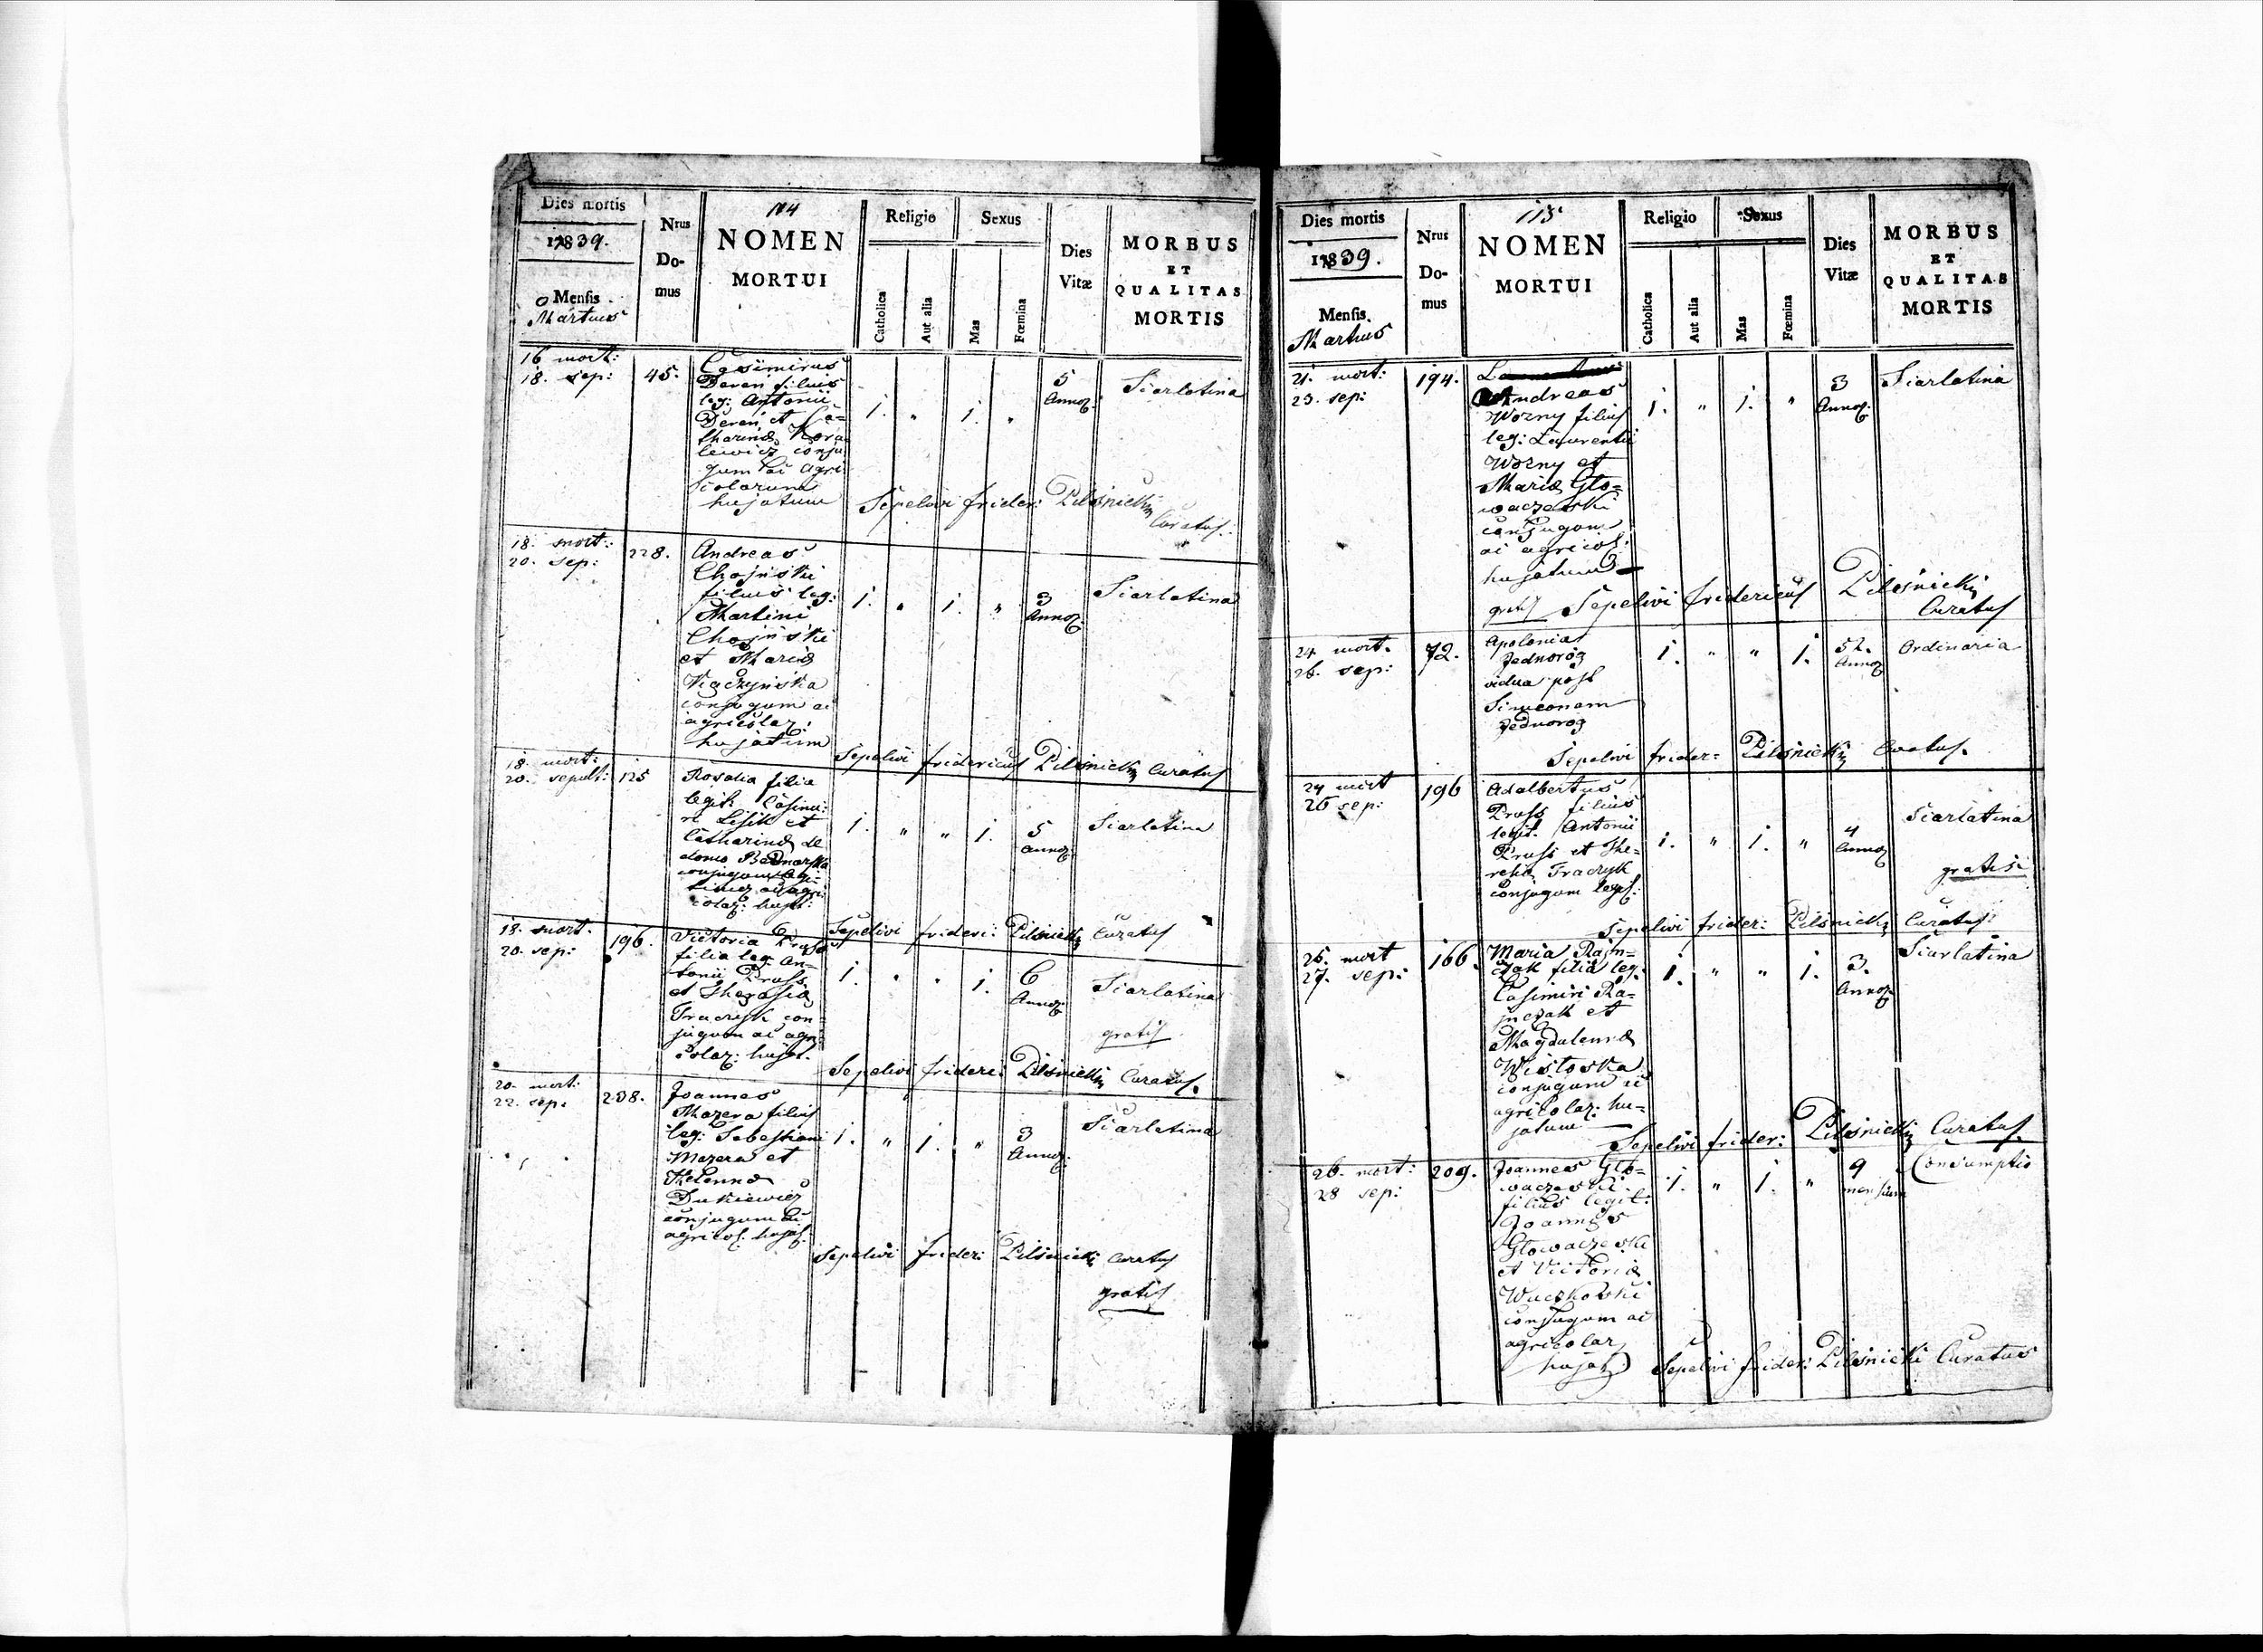 Dies mortis
1839.
Mensis
Martius
Nrus
Do-
mus
114
NOMEN
MORTUI
Religio
Catholica
Aut alia
Sexus
Mas
Fœmina
Dies
Vitæ
MORBUS
ET
QUALITAS
MORTIS
16 mort:
18. sep:
45.
Casimirus
Deren filius
leg: Antonii
Deren et Ca=
tharinæ Kora
lewicz conju
gum ac agri
colarum
hujatum
1. " 1. "
5
Annor.
Scarlatina
Sepelivi frider: Pilśnicki
Curatus.
18. mort:
20. sep:
228.
Andreas
Chojński
filius leg:
Martini
Chojński
et Mariæ
conjugum ac
agricolar:
hujatum
1. " 1. "
3
Annor.
Scarlatina
Sepelivi fridericus Pilśnicki Curatus
18. mort:
20. sepult:
125
Rosalia filia
legit: Casimi:
ri Lisik et
Catharinæ de
domo Bednarska
conjugum legi=
timor ac agri
colar: hujat:
1. " " 1.
5
annor.
Scarlatina
Sepelivi frideri: Pilśnicki Curatus
18. mort.
20. sep:
196.
Victoria Pruss
filia leg: An=
tonii Pruss
et Theresiæ
Traczyk con=
jugum ac agri
colar: hujat.
1. " " 1.
6
Annor.
Scarlatina
gratis
Sepelivi frideri: Pilśnicki Curatus.
20. mort:
22. sep:
238.
Joannes
Mazera filius
leg: Sebestiani
Mazera et
Helenna
Dukiewicz
conjugum ac
agricol. hujat.
1. " 1. "
3
Annor.
Scarlatina
Sepelivi frider: Pilśnicki Curatus
gratis
Dies mortis
1839.
Mensis.
Martius
Nrus
Do-
mus
115
NOMEN
MORTUI
Religio
Catholica
Aut alia
Sexus
Mas
Fœmina
Dies
Vitæ
MORBUS
ET
QUALITAS
MORTIS
21. mort:
23. sep:
194.
Andreas
Wozny filius
leg: Laurentii
Wozny et
Mariæ Glo=
waczewski
conjugum
ac agricol:
hujatum
1. " 1. "
3
Annor.
Scarlatina
gratis Sepelivi fridericus Pilśnicki
Curatus
24 mort.
26. sep:
72.
Apolonia
Jednoróg
vidua post
Simeonem
Jednorog
1. " " 1.
52.
Annor
Ordinaria
Sepelivi frider= Pilśnicki Curatus.
24 mort
26 sep:
196
Adalbertus
Pruss filius
legit. Antonii
Pruss et The=
resia Traczyk
conjugum legit.
1. " 1. "
4
Annor
Scarlatina
gratis
Sepelivi frider: Pilśnicki Curatus
25. mort
27. sep:
166.
Maria Rajn=
czak filia leg:
Casimiri Ra=
jnczak et
Magdalennæ
Wistoska
conjugum ac
agricolar: hu=
jatum
1. " " 1.
3.
Annor
Scarlatina
Sepelivi frider: Pilśnicki Curatus.
26. mort:
28 sep:
209.
Joannes Glo=
waczewski
filius legit:
Joannis
Glowaczewski
et Victoriæ
Waczkowski
conjugum ac
agricolar
hujat
1. " 1. "
9
mensium
Consumptio
Sepelivi frider: Pilśnicki Curatus